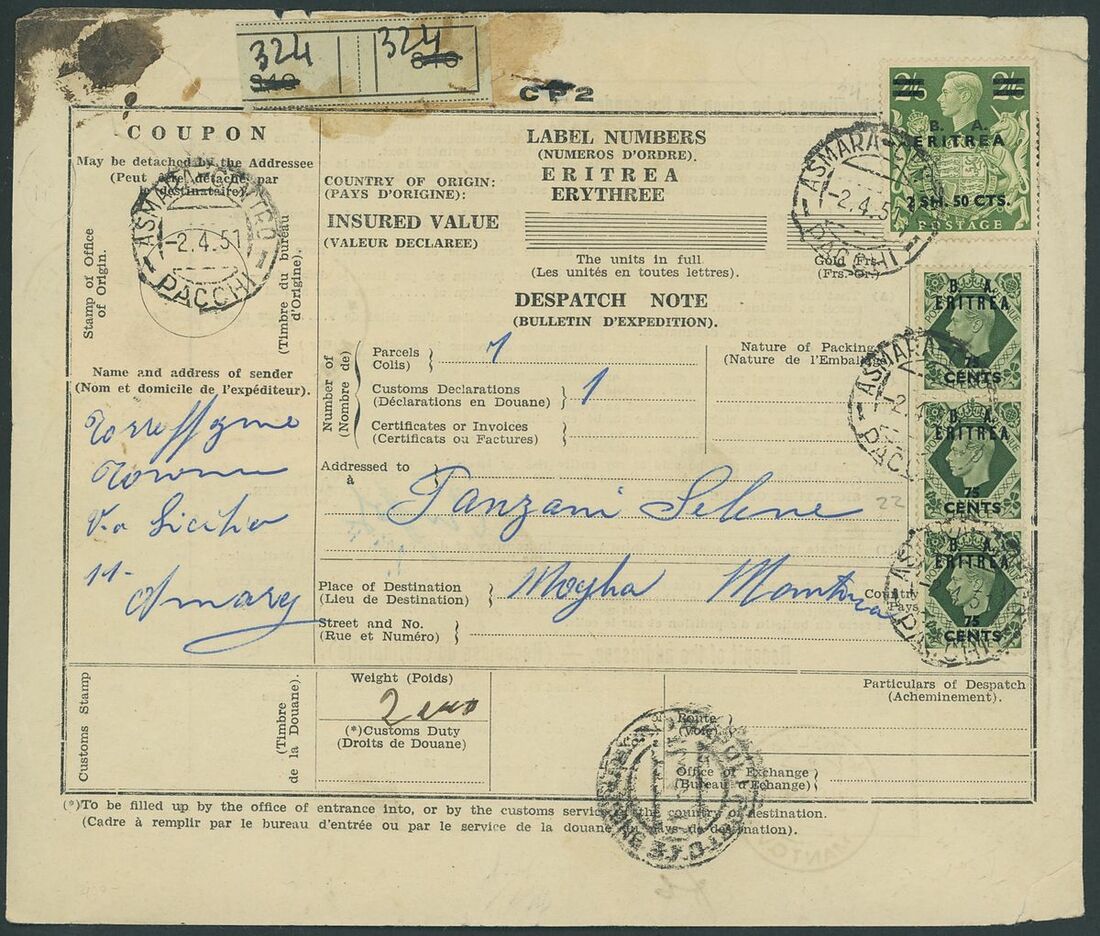 324 324
840 840
CP2
COUPON
May be detached by the Addressee
(Peut être détaché par
le destinataire).
Stamp of Office
of Origin.
(Timbre du bureau
d'Origine).
ASMARA CENTRO
-2.4.51
PACCHI
Name and address of sender
(Nom et domicile de l'expéditeur).
Via Sicilia
11-
LABEL NUMBERS
(NUMEROS D'ORDRE).
COUNTRY OF ORIGIN: ERITREA
(PAYS D'ORIGINE): ERYTHREE
INSURED VALUE
(VALEUR DECLAREE)
The units in full
(Les unités en toutes lettres).
Gold Frs.
(Frs.-Or).
DESPATCH NOTE
(BULLETIN D'EXPEDITION).
Number of
(Nombre de)
Parcels 1
Colis)
Customs Declarations 1
(Déclarations en Douane)
Certificates or Invoices
(Certificats ou Factures)
Nature of Packing
(Nature de l'Emballage
Addressed to
à
Panzani Selene
22
Place of Destination Moglia Mantova
(Lieu de Destination)
Country
Pays
Street and No.
(Rue et Numéro)
Customs Stamp
(Timbre
de la Douane).
Weight (Poids)
(*)Customs Duty
(Droits de Douane)
Particulars of Despatch
(Acheminement).
Route
(Voie)
Office of Exchange
(Bureau d'Echange)
(*)To be filled up by the office of entrance into, or by the customs service the country of destination.
(Cadre à remplir par le bureau d'entrée ou par le service de la douane du pays de destination).
2/6 2/6
B. A.
ERITREA
2 SH. 50 CTS.
POSTAGE
ASMARA
-2.4.51
PACCHI
B. A.
ERITREA
75
CENTS
ASMARA
-2.4
PACC
B. A.
ERITREA
75
CENTS
B. A.
ERITREA
75
CENTS
PACCHI